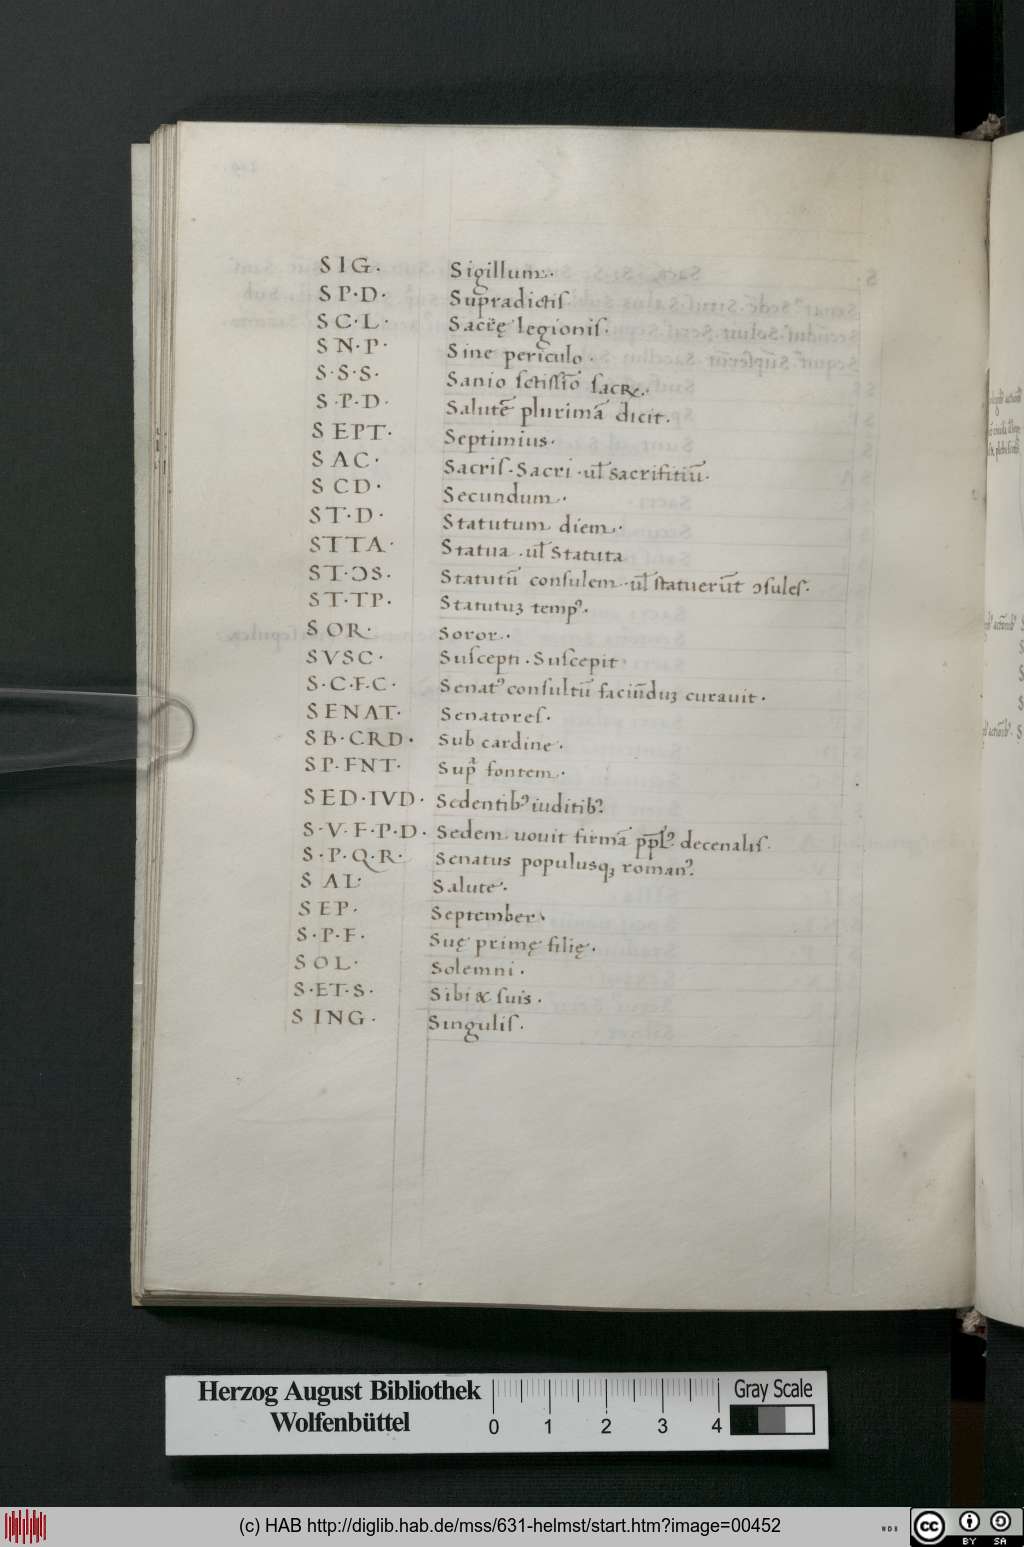 SIG· Sigillum·
SP·D· Supradictiſ
SC·L· Sacrę legioniſ·
SN·P· Sine periculo·
S·S·S· Sanio ſctiſſīo ſacre·
S·P·D· Salutē plurimā dicit·
SEPT· Septimius·
SAC· Sacriſ·Sacri·ul̄ sacrifitiū·
SCD· Secundum·
ST·D· Statutum diem·
STTA· Statua·ul̄ Statuta
ST·ƆS· Statutū conſulem·ul̄ ſtatuerūt ɔſuleſ·
ST·TP· Statutuꝫ tempꝰ·
SOR· Soror·
SVSC· Suſcepti·Suſcepit
S·C·F·C· Senatꝰ conſultū faciūduꝫ curauit·
SENAT· Senatoreſ·
SB·CRD· Sub cardine·
SP·FNT· Supᷓ fontem·
SED·IVD· Sedentibꝰ iuditibꝰ·
S·V·F·P·D· Sedem uouit firmā pp̄lꝰ decenaliſ·
S·P·Q·R· Senatus populusqꝫ romanꝰ·
SAL· Salute·
SEP· September·
S·P·F· Suę primę filię·
SOL· Solemni·
S·ET·S· Sibi & ſuis·
SING· Singuliſ·
Herzog August Bibliothek
Wolfenbüttel
0 1 2 3 4
Gray Scale
(c) HAB http://diglib.hab.de/mss/631-helmst/start.htm?image=00452
WDB
cc BY SA